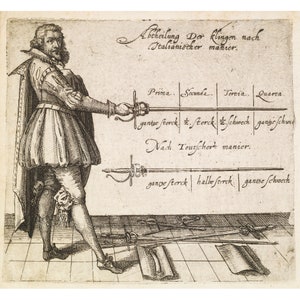 Abtheilung Der klingen nach
Italianischer manier.
Prima Secunda Terza Quarta
gantze sterck ½ sterck ½ schwech gantze schwech
Nach Teutscher manier.
gantze sterck halbe sterck gantze schwech